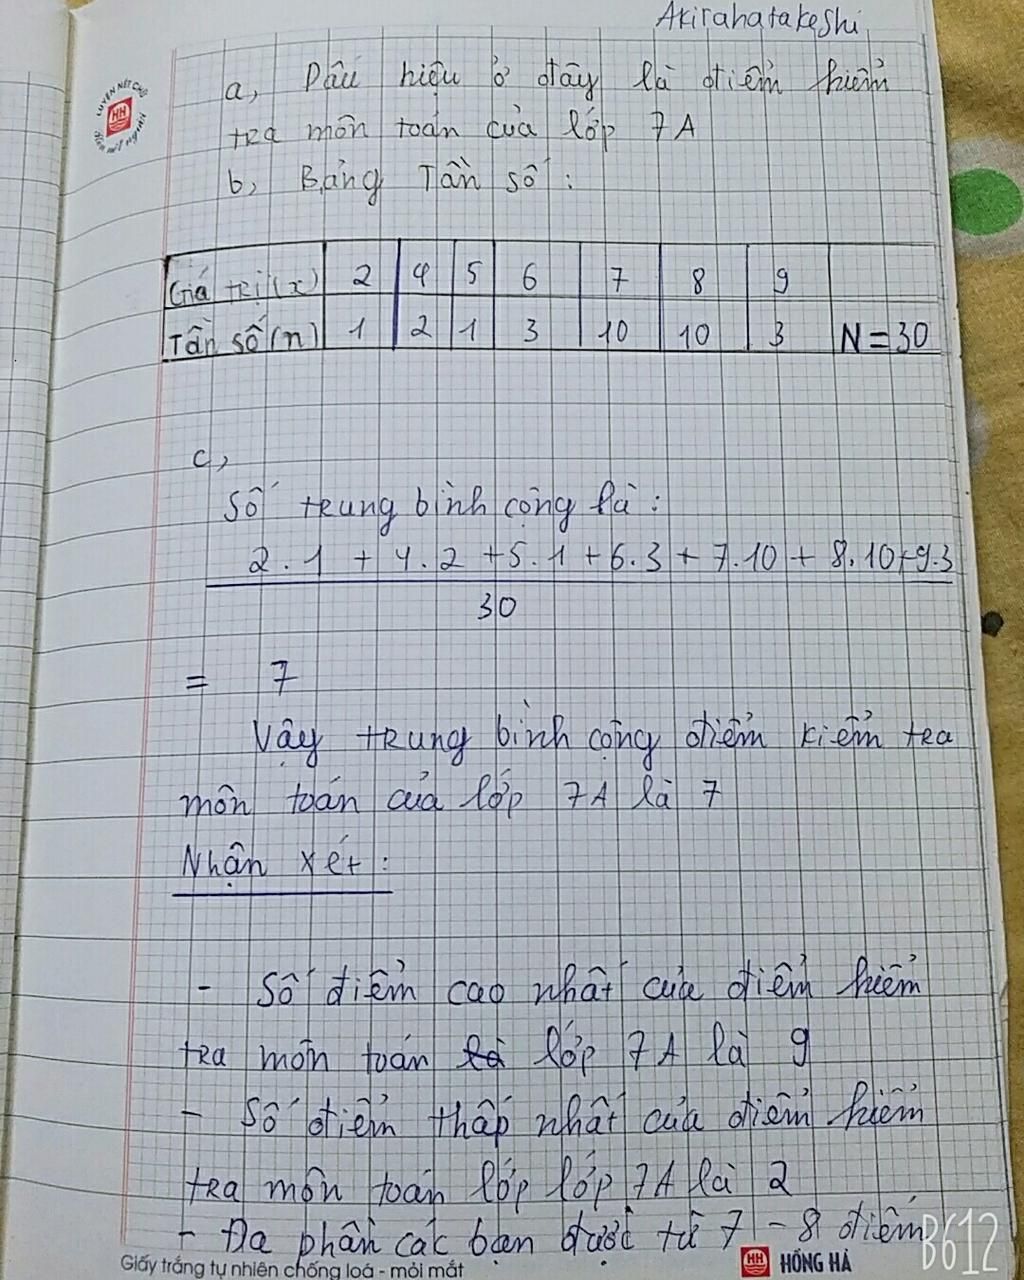 Akirahatakeshi
LUYỆN NÉT CHỮ
HH
Rèn nết người
a, Dấu hiệu ở đây là điểm kiểm
tra môn toán của lớp 7A
b, Bảng Tần số :
Giá trị (x) 2 4 5 6 7 8 9
Tần số (n) 1 2 1 3 10 10 3 N = 30
c,
Số trung bình cộng là :
2.1 + 4.2 + 5.1 + 6.3 + 7.10 + 8.10 + 9.3
30
= 7
Vậy trung bình cộng điểm kiểm tra
môn toán của lớp 7A là 7
Nhận xét :
- Số điểm cao nhất của điểm kiểm
tra môn toán là lớp 7A là 9
- Số điểm thấp nhất của điểm kiểm
tra môn toán lớp lớp 7A là 2
- Đa phần các bạn được từ 7 - 8 điểm
B612
Giấy trắng tự nhiên chống loá - mỏi mắt HH HỒNG HÀ